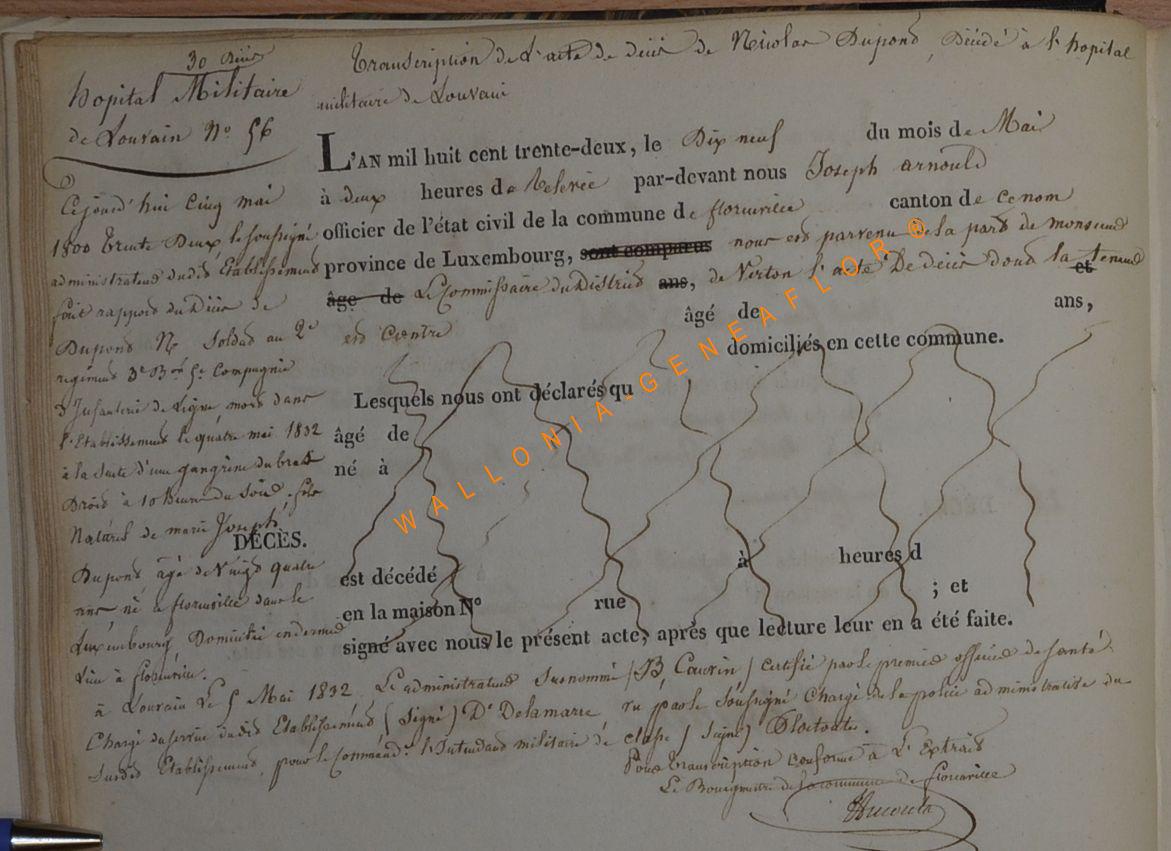 30 Décès
Transcription de L'acte de décès de Nicolas Dupond, Décédé à l'hopital
militaire de Louvain
hopital Militaire
de Louvain N° 56
L'AN mil huit cent trente-deux, le Dix neuf du mois de Mai
à deux heures de Relevée par-devant nous Joseph arnould
officier de l'état civil de la commune de florenville canton de
province de Luxembourg, sont comparus nous est parvenu de la part de monsieur
âge de Le Commissaire du District ans, de Virton l'acte De décès dont la teneur et
est Contre
âgé de ans,
domiciliés en cette commune.
Lesquels nous ont déclarés qu
âgé de
né à
est décédé à heures d
en la maison N° rue ; et
signé avec nous le présent acte, après que lecture leur en a été faite.
Cejourd'hui Cinq mai
1800 trente Deux, le soussigné
administrateur dudit Etablissement
fait rapport du Décès de
Dupond N. Soldat au 2e
régiment 3e Bon 5e Compagnie
d'Infanterie de Ligne mort dans
l'Etablissement le quatre mai 1832
à la suite d'une gangrène du bras
Droit à 10 heures du Soir, fils
Naturel de marie Joseph
DÉCÈS.
Dupond âgé de Vingt quatre
ans né à florenville dans le
Luxembourg Domicilié en dernier
Lieu à florenville.
à Louvain Le 5 Mai 1832. L'administrateur Surnommé certifié par le premier officier de santé
Chargé du service dudit Etablissement (Signé) Dr Delamarre, vu par le Soussigné Chargé de la police administrative du
Susdit Etablissement, pour le Command. l'Intendant militaire de classe (signé)
Pour transcription conforme à L'Extrait
Le Bourgmestre de la commune de florenville
WALLONIA-GENEAFLOR ©